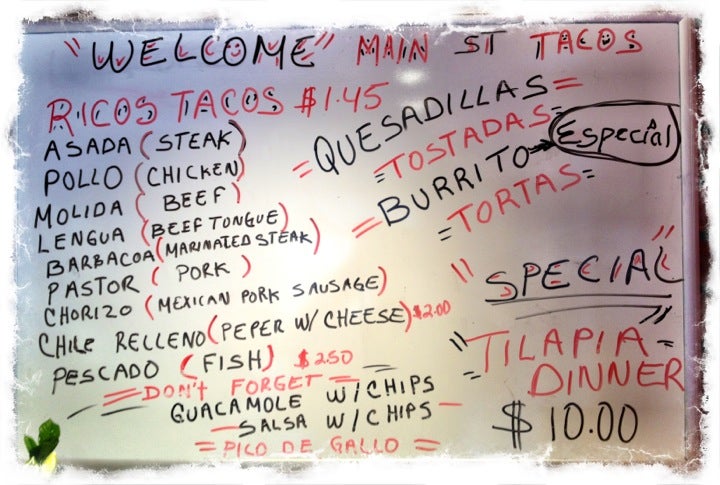 "WELCOME" MAIN ST TACOS
RICOS TACOS $1.45
ASADA (STEAK)
POLLO (CHICKEN)
MOLIDA ( BEEF )
LENGUA (BEEF TONGUE)
BARBACOA (MARINATED STEAK)
PASTOR ( PORK )
CHORIZO (MEXICAN PORK SAUSAGE)
CHILE RELLENO (PEPER W/ CHEESE) $2.00
PESCADO ( FISH ) $2.50
= DON'T FORGET =
GUACAMOLE W/CHIPS
SALSA W/CHIPS
= PICO DE GALLO =
= QUESADILLAS =
= TOSTADAS =
= BURRITO → Especial
= TORTAS =
"SPECIAL"
"TILAPIA
= DINNER
$ 10.00